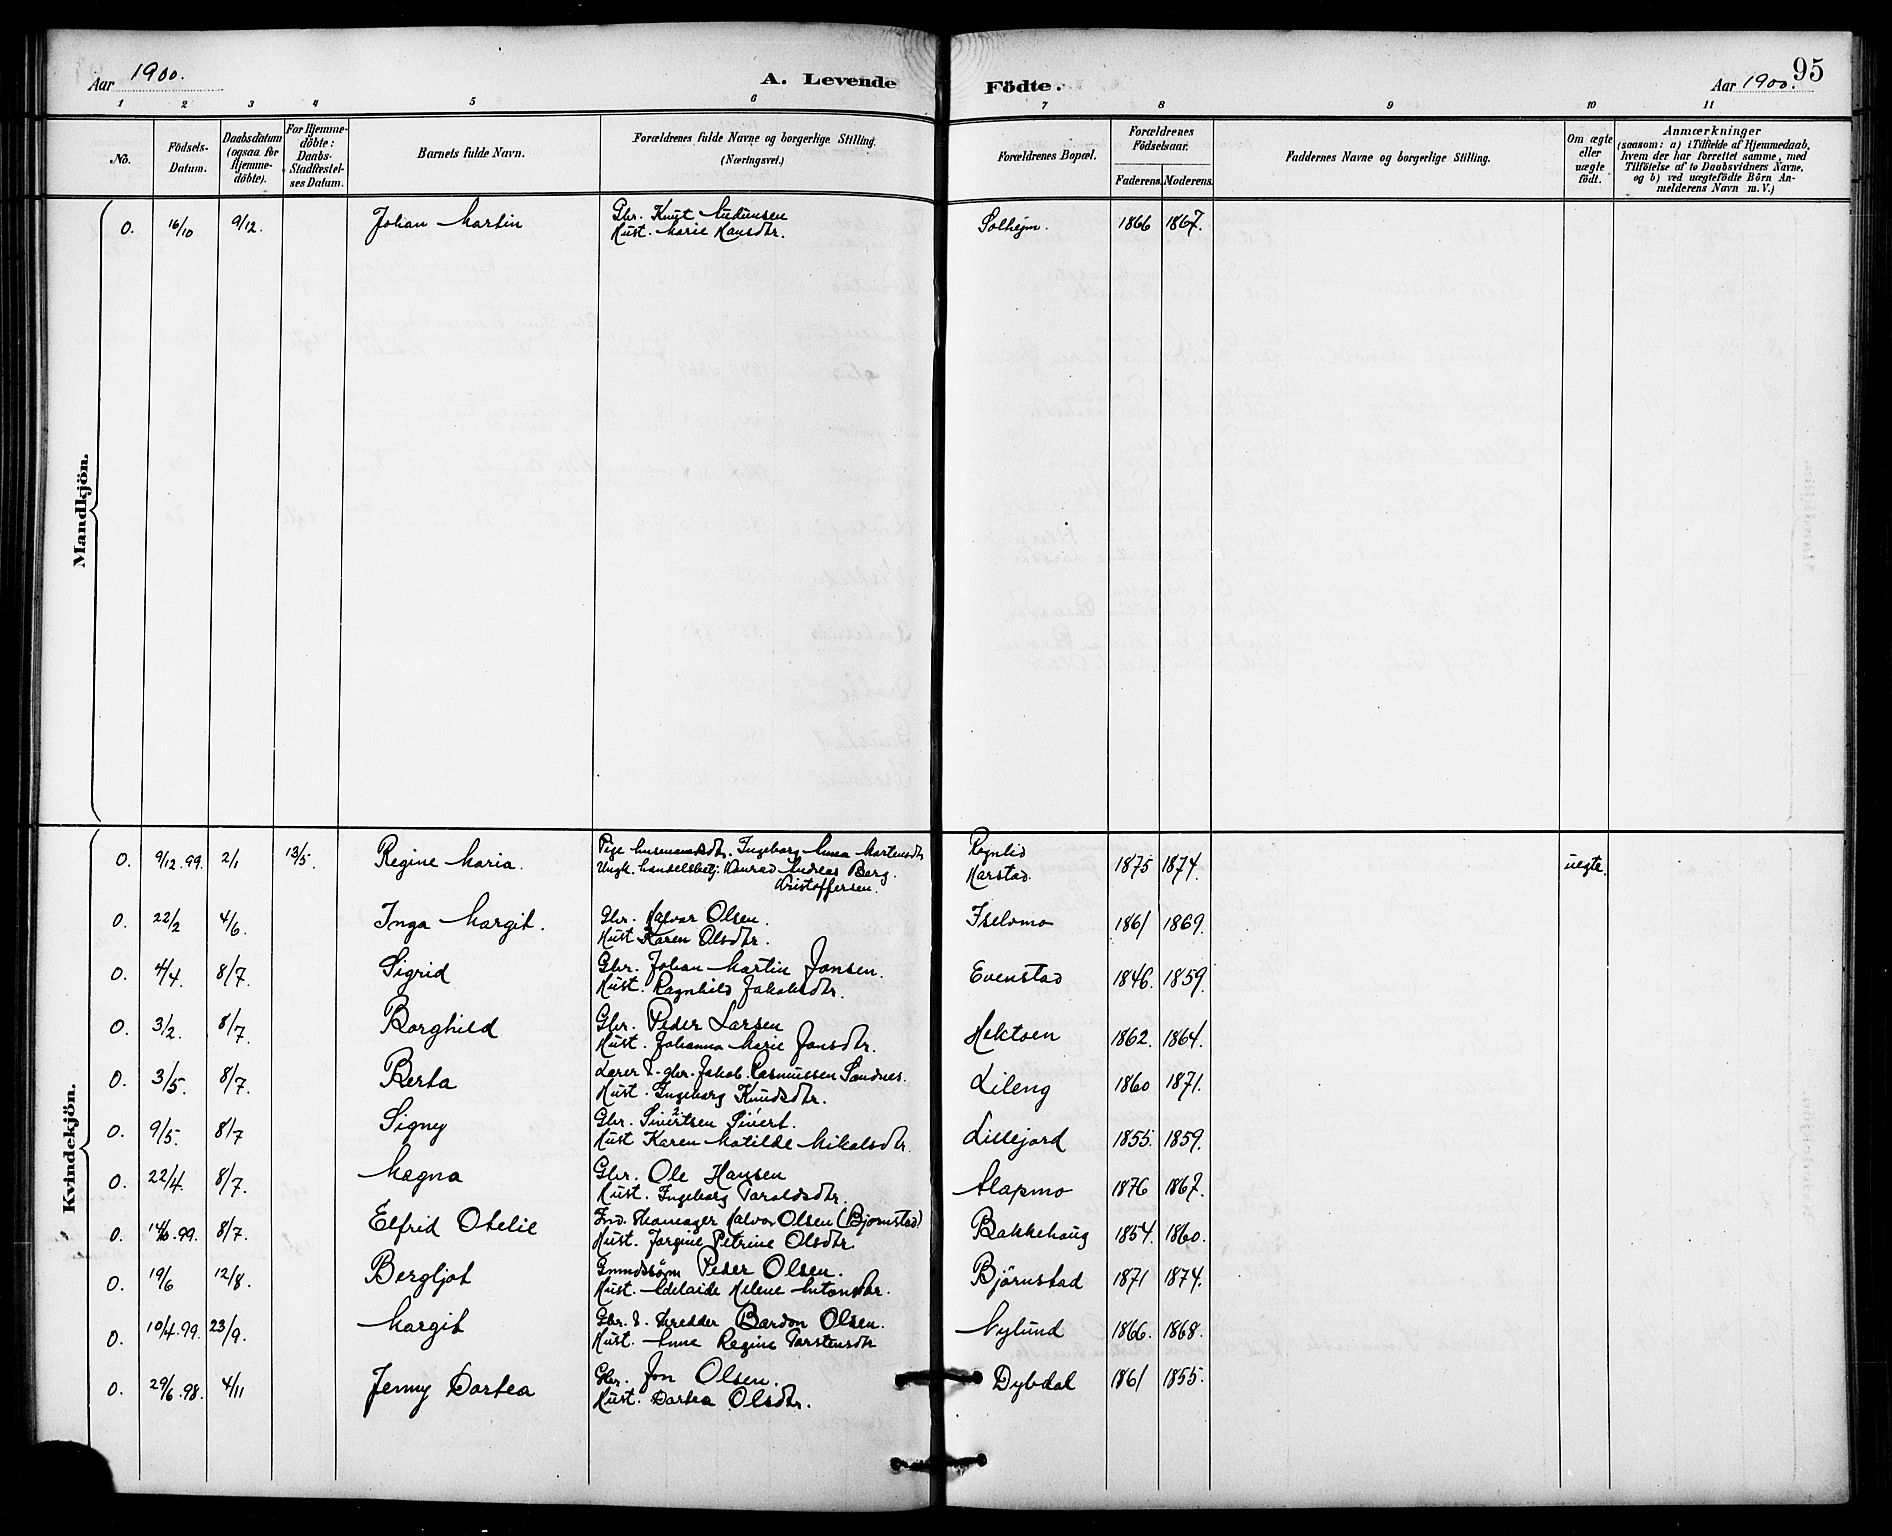 Aar 1900.
A. Levende Födte.
Aar 1900.
95
1 2 3 4 5 6 7 8 9 10 11
No.
Födsels-
Datum.
Daabsdatum
(ogsaa for
Hjemme-
döbte).
For Hjemme-
döbte:
Daabs-
Stadfæstel-
ses Datum.
Barnets fulde Navn.
Forældrenes fulde Navne og borgerlige Stilling.
(Næringsvei.)
Forældrenes Bopæl.
Forældrenes
Födselsaar.
Faderens. Moderens.
Faddernes Navne og borgerlige Stilling.
Om ægte
eller
uægte
födt.
Anmærkninger
(saasom: a) i Tilfælde af Hjemmedaab,
hvem der har forrettet samme, med
Tilföielse af to Daabsvidners Navne,
og b) ved uægtefödte Börn An-
melderens Navn m. V.)
Mandkjön.
0. 16/10 9/12. Johan Martin Gbr. Knut Audunsen Solhejm. 1866 1867.
Hust. Marie Hansdtr.
Kvindekjön.
0. 9/12.99. 2/1 13/5. Regine Maria. Pige husmandsdtr. Ingeborg Anna Martensdtr 1875 1874. uegte.
Ungk. handelsbetj. Konrad Andreas Berg. Harstad.
Kristoffersen.
0. 22/2 4/6. Inga Margit. Gbr. Halvor Olsen. Iselvmo 1861 1869.
Hust Karen Olsdtr.
0. 4/4. 8/7. Sigrid Gbr. Johan Martin Jonsen. Evenstad 1846. 1859.
Hust. Ragnhild Jakobsdtr.
0. 3/2. 8/7. Borghild Gbr. Peder Larsen Hektoen 1862. 1864.
Hust. Johanna Marie Jonsdtr.
0. 3/5. 8/7. Berta Lærer & gbr. Jakob Rasmussen Sandnes. Lileng 1860 1871.
Hust. Ingeborg Knudsdtr.
0. 9/5. 8/7 Signy Gbr. Sivertsen Sivert. Lillejord 1855. 1859.
Hust Karen Matilde Mikalsdtr.
0. 22/4. 8/7. Magna Gbr. Ole Hansen Alapmo 1876 1867.
Hust. Ingeborg Toraldsdtr.
0. 8/7. Elfrid Otelie Ind. Skomager Halvor Olsen (Bjørnstad) Bakkehaug 1854. 1860.
Hust. Jorgine Petrine Olsdtr.
0. 19/6 12/8. Bergljot Gmdssøn Peder Olsen. Björnstad 1871 1874.
Hust. Adelaide Helene Antonsdtr.
0. 10/4.99. 23/9. Margit Gbr. & skredder Bardon Olsen. Nylund 1866. 1868.
Hust. Anne Regine Torstensdtr
0. 29/6.98. 4/11 Jenny Dortea Gbr. Jon Olsen. Dybdal 1861 1855.
Hust. Dortea Olsdtr.